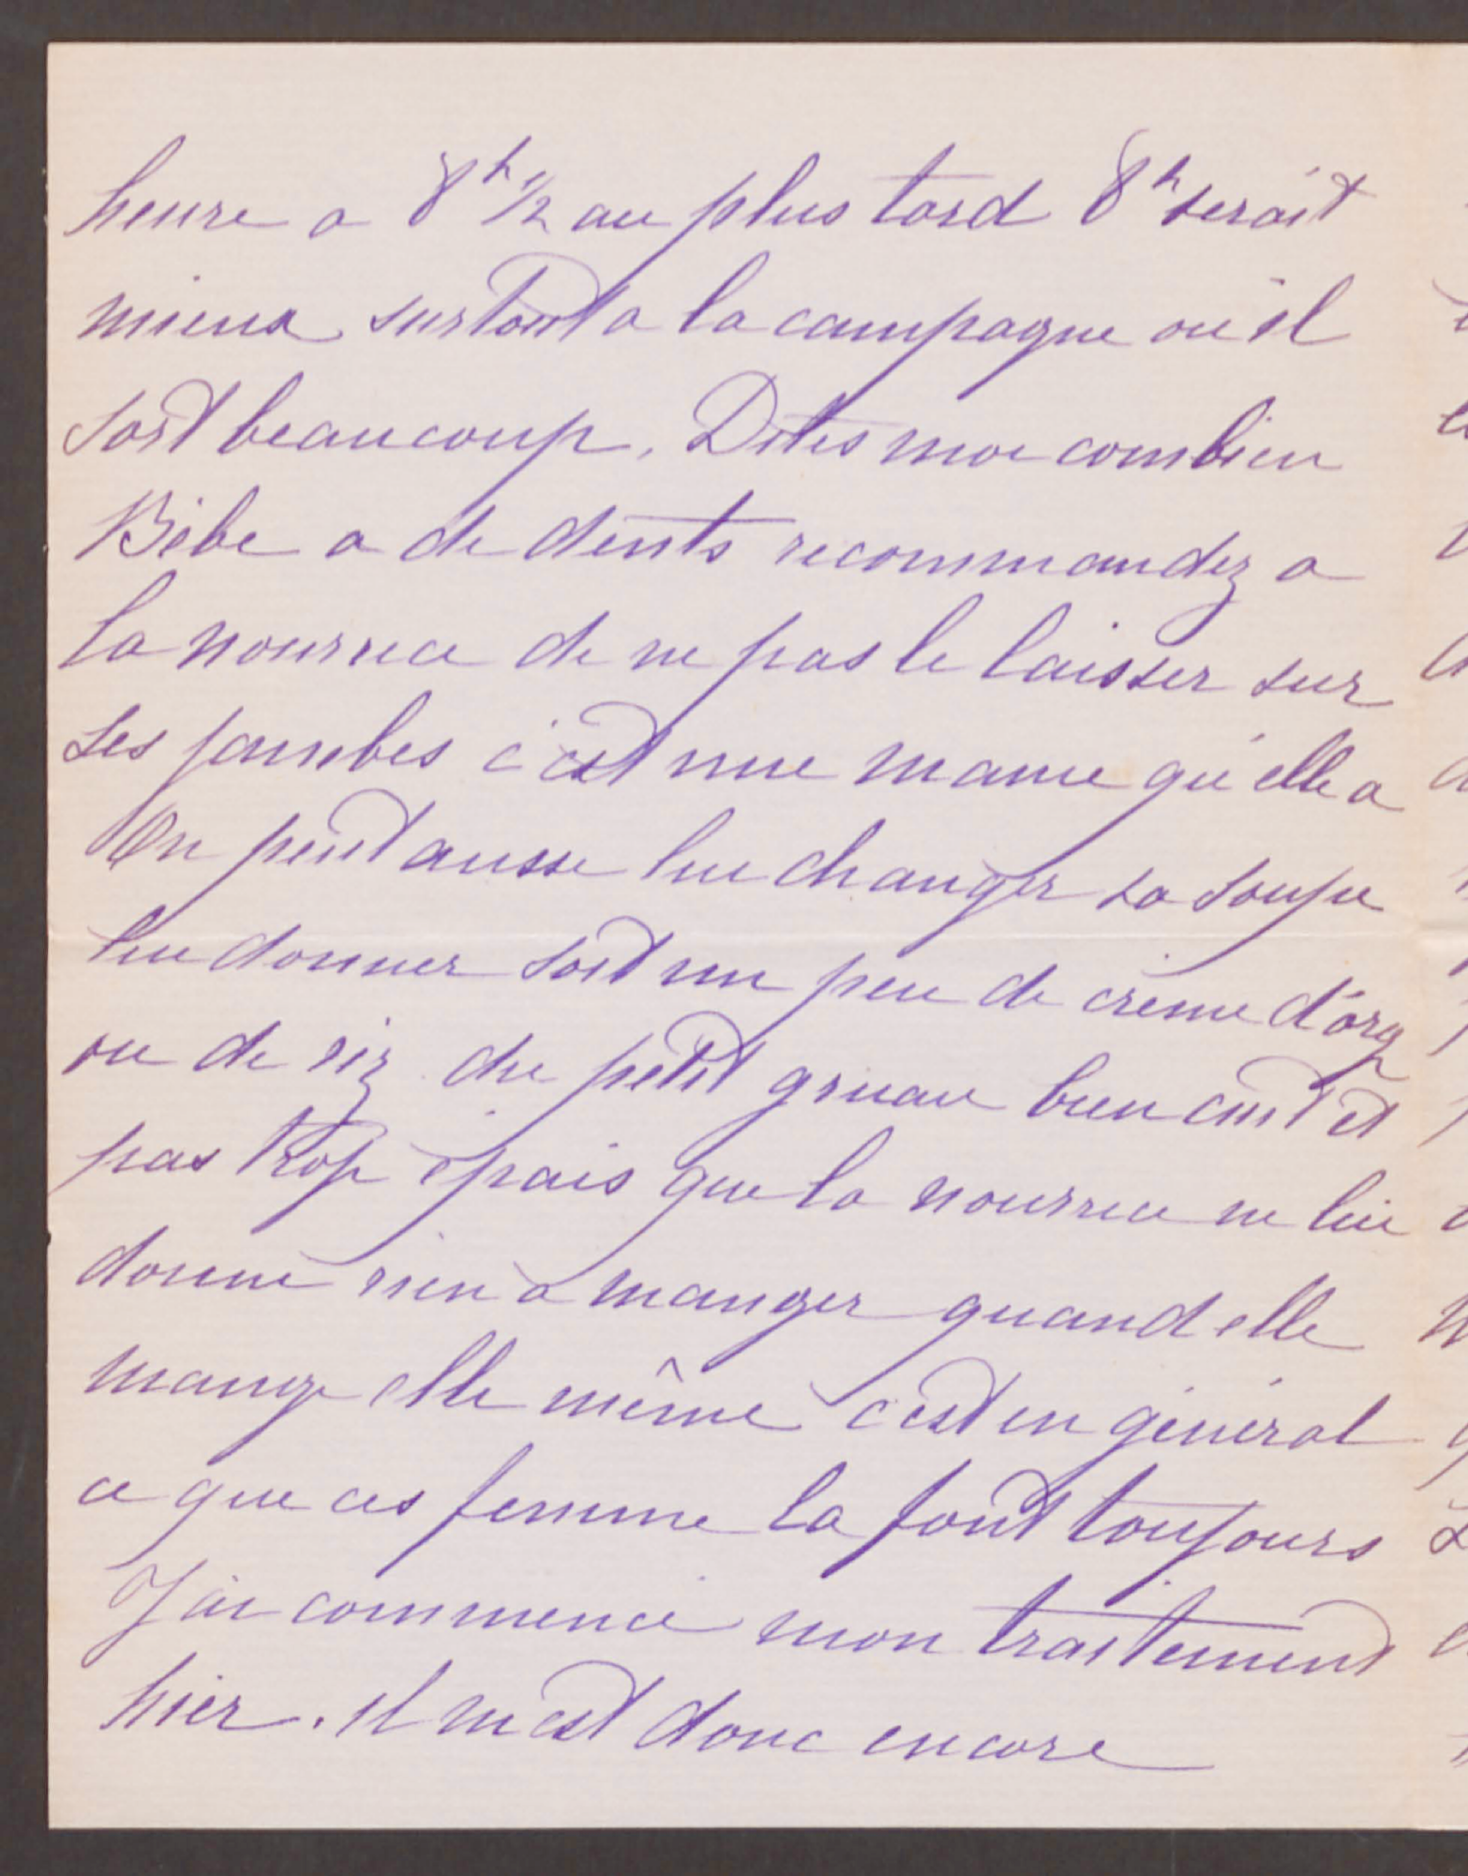 heure a 8h 1/2 au plus tard 8h serait
mieux surtout a la campagne où il
sort beaucoup. Dites moi combien
Bébé a de dents recommandez a
la nourrice de ne pas le laisser sur
ses jambes c'est une manie qu'elle a
On peut aussi lui changer sa soupe
lui donner soit un peu de crème d'orge
ou de riz du petit gruau bien cuit et
pas trop épais que la nourrice ne lui
donne rien à manger quand elle
mange elle même c'est en général
ce que ces femme la font toujours
J'ai commencé mon traitement
hier. il m'est donc encore